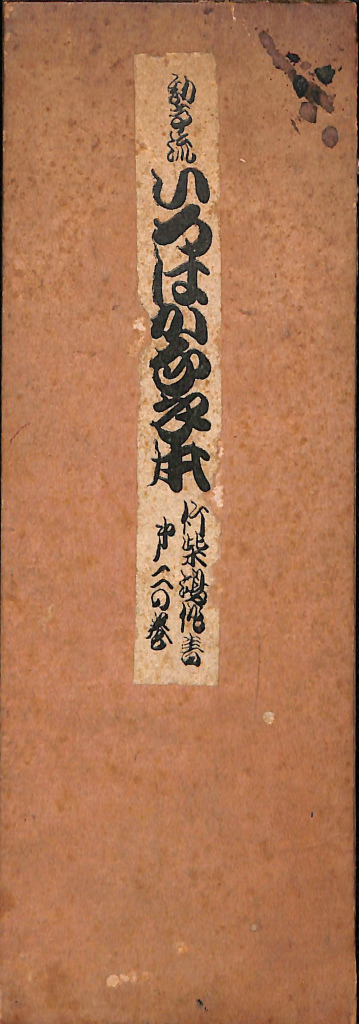 勘亭流
いろはかな手本
竹柴鴻作書
第一の巻